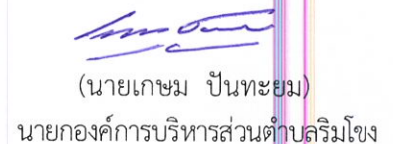 (นายเกษม ปันทะยม)
นายกองค์การบริหารส่วนตำบลริมโขง